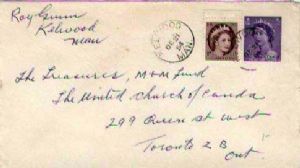 Roy Gunn
Kelwood
Man
KELWOOD
MAN
The Treasures, M&M Fund
The United Church of Canda
299 Queen St West
Toronto 2B
Ont